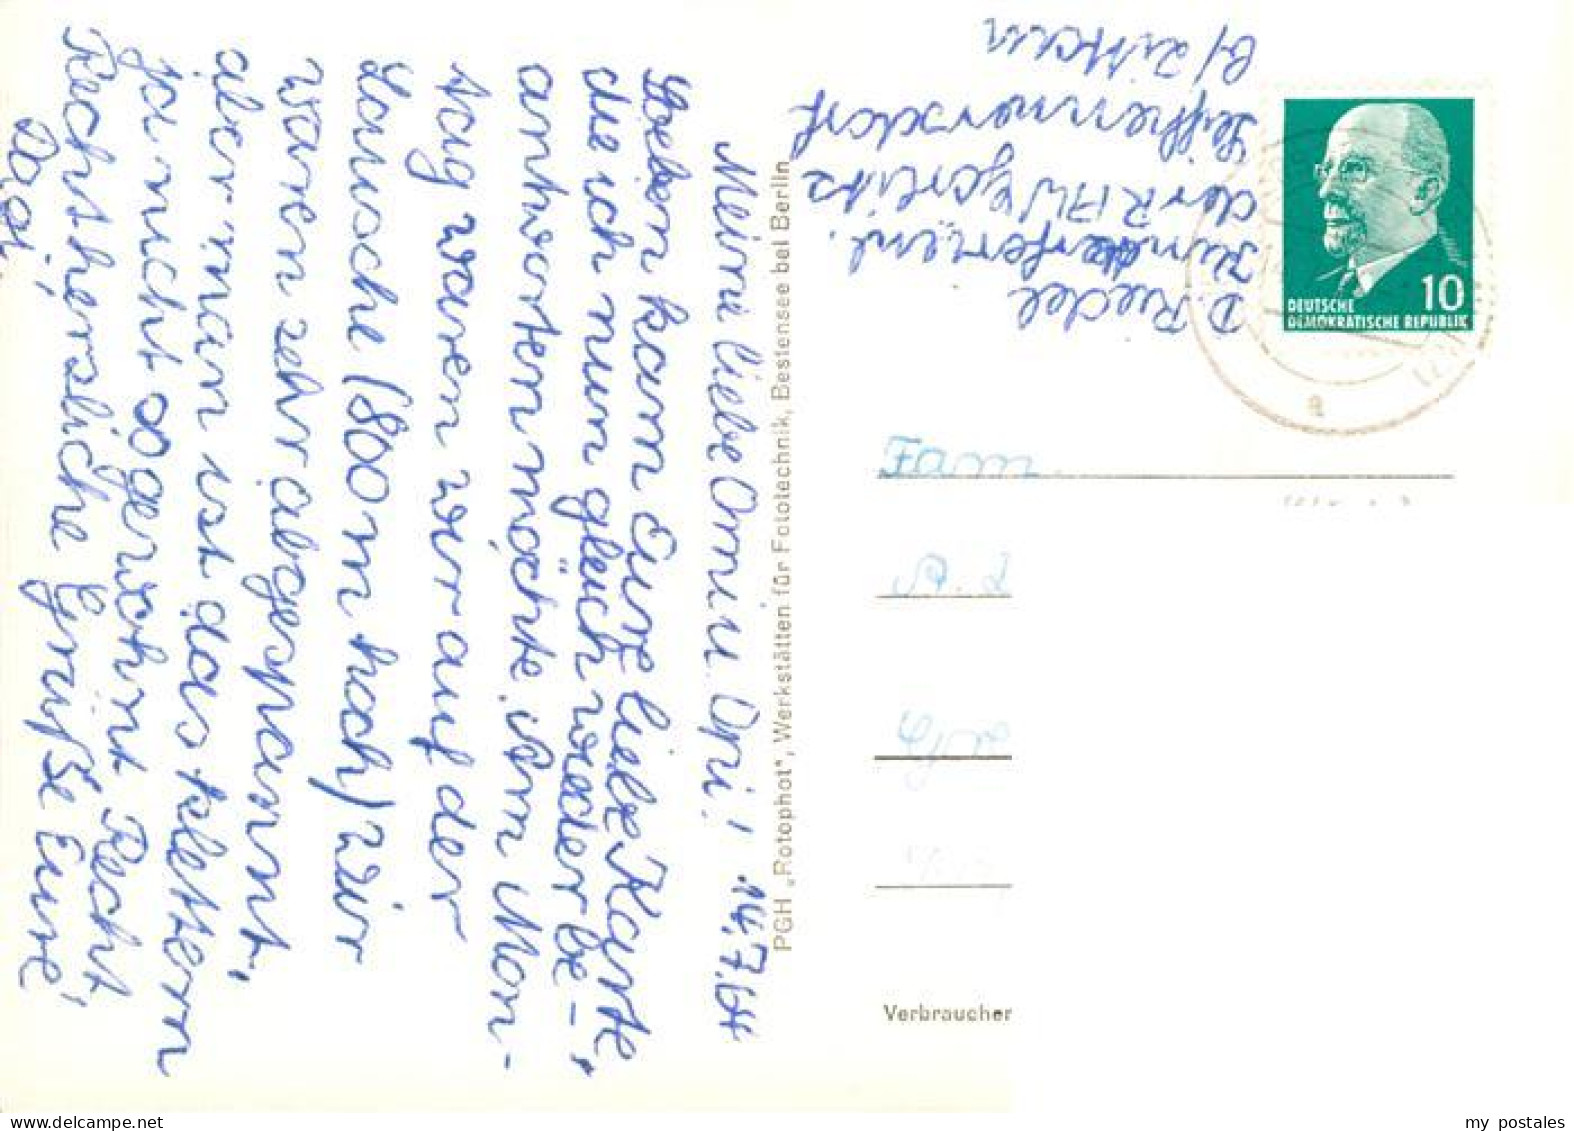 Meine liebe Omi u. Opi! 14.7.64
Soeben kam Eure liebe Karte,
die ich nun gleich wieder be-
antworten möchte. Am Mon-
tag waren wir auf der
Lausche (800 m hoch) wir
waren sehr abgespannt,
aber man ist das klettern
ja nicht so gewohnt. Recht
Recht herzliche Grüße Eure
Dagi.
PGH „Rotophot“, Werkstätten für Fototechnik, Bestensee bei Berlin
D. Riedel
Kinderferienl.
der RAW Görlitz
Seifhennersdorf
b/Zittau
10
DEUTSCHE
DEMOKRATISCHE REPUBLIK
Fam.
Verbraucher
my postales